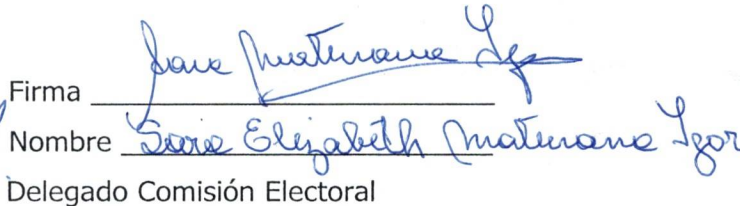 Firma Sara Maturana Igor
Nombre Sara Elizabeth Maturana Igor
Delegado Comisión Electoral